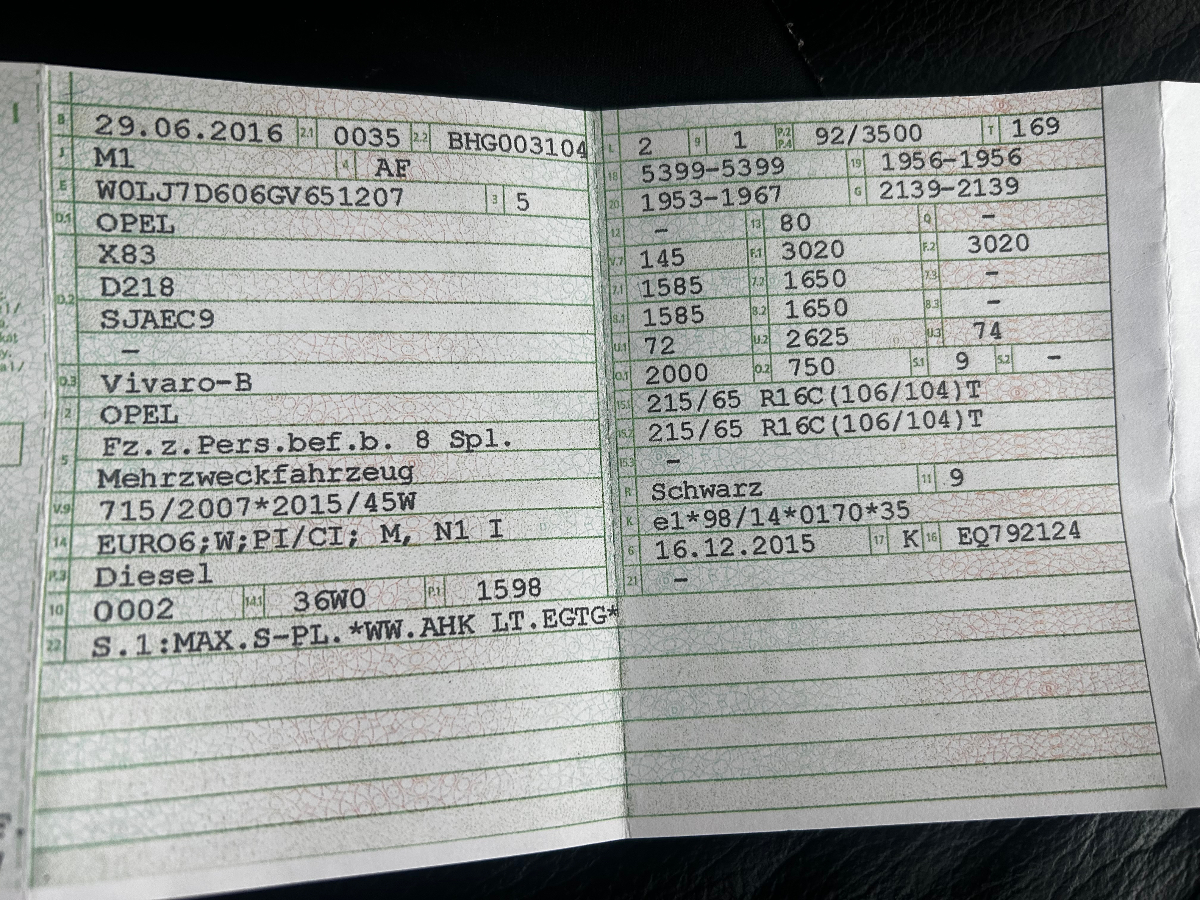 B 29.06.2016 2.1 0035 2.2 BHG003104
J M1 4 AF
E W0LJ7D606GV651207 3 5
D.1 OPEL
X83
D.2 D218
SJAEC9
–
D.3 Vivaro-B
2 OPEL
Fz.z.Pers.bef.b. 8 Spl.
5 Mehrzweckfahrzeug
V.9 715/2007*2015/45W
14 EURO6;W;PI/CI; M, N1 I
P.3 Diesel
10 0002 14.1 36W0 P.1 1598
22 S.1:MAX.S-PL.*WW.AHK LT.EGTG*
L 2 9 1 P.2 P.4 92/3500 T 169
18 5399-5399 19 1956-1956
20 1953-1967 G 2139-2139
12 – 13 80 Q –
V.7 145 F.1 3020 F.2 3020
7.1 1585 7.2 1650 7.3 –
8.1 1585 8.2 1650 8.3 –
U.1 72 U.2 2625 U.3 74
O.1 2000 O.2 750 S.1 9 S.2 –
15.1 215/65 R16C(106/104)T
15.2 215/65 R16C(106/104)T
15.3 –
R Schwarz 11 9
K e1*98/14*0170*35
6 16.12.2015 17 K 16 EQ792124
21 –